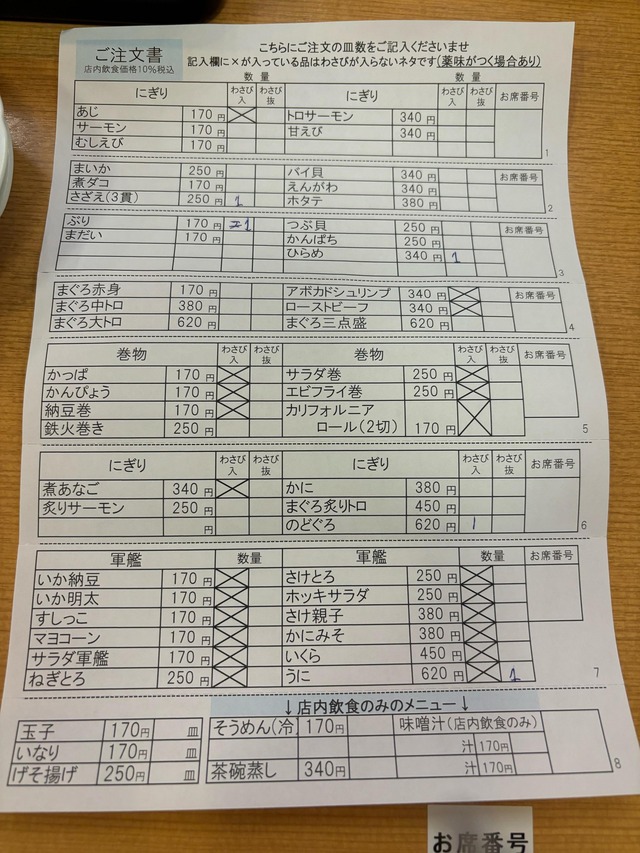 ご注文書
店内飲食価格10%税込
こちらにご注文の皿数をご記入くださいませ
記入欄に×が入っている品はわさびが入らないネタです(薬味がつく場合あり)
数 量 数 量
にぎり わさび入 わさび抜 にぎり わさび入 わさび抜 お席番号
あじ 170円 トロサーモン 340円
サーモン 170円 甘えび 340円
むしえび 170円 1
まいか 250円 バイ貝 340円 お席番号
煮ダコ 170円 えんがわ 340円
さざえ(3貫) 250円 1 ホタテ 380円 2
ぶり 170円 1 つぶ貝 250円 お席番号
まだい 170円 かんぱち 250円
ひらめ 340円 1 3
まぐろ赤身 170円 アボカドシュリンプ 340円 お席番号
まぐろ中トロ 380円 ローストビーフ 340円
まぐろ大トロ 620円 まぐろ三点盛 620円 4
巻物 わさび入 わさび抜 巻物 わさび入 わさび抜 お席番号
かっぱ 170円 サラダ巻 250円
かんぴょう 170円 エビフライ巻 250円
納豆巻 170円 カリフォルニア
鉄火巻き 250円 ロール(2切) 170円 5
にぎり わさび入 わさび抜 にぎり わさび入 わさび抜 お席番号
煮あなご 340円 かに 380円
炙りサーモン 250円 まぐろ炙りトロ 450円
円 のどぐろ 620円 1 6
軍艦 数量 軍艦 数量 お席番号
いか納豆 170円 さけとろ 250円
いか明太 170円 ホッキサラダ 250円
すしっこ 170円 さけ親子 380円
マヨコーン 170円 かにみそ 380円
サラダ軍艦 170円 いくら 450円
ねぎとろ 250円 うに 620円 1 7
↓店内飲食のみのメニュー↓
玉子 170円 皿 そうめん(冷) 170円 味噌汁(店内飲食のみ)
いなり 170円 皿 汁 170円
げそ揚げ 250円 皿 茶碗蒸し 340円 汁 170円 8
お席番号